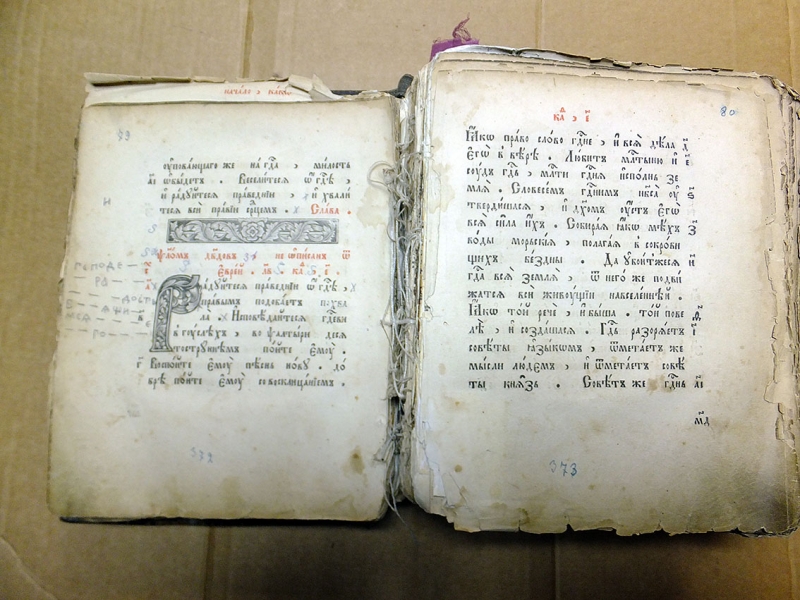 начало, каѳ
79
оуповающаго же на гд҃а, милость
аі ѡбыдетъ. Веселитеся ѡ гд҃ѣ,
и радуйтеся праведніи, и хвали
теся вси правіи срцемъ. Слава.
ѱаломъ дв҃довъ, не ѡписан ѡ
еврѣй.
Радуйтеся праведніи ѡ гд҃ѣ,
правымъ подобаетъ похва
ла. Исповѣдайтеся гд҃еви
в гоуслехъ, во ѱалтыри деся
тострꙋннѣмъ пойте емоу.
г Воспойте емоу пѣснь нову. до
брѣ пойте емоу со восклицаніемъ.
372
ка҃, і
80
Ꙗко право слово гд҃не, и всѧ дѣла д
Егѡ в вѣрѣ. Любитъ млт҃ыню и е
соудъ гд҃ь, млт҃и гд҃ня исполнь зе
мля. Словесемъ гд҃нимъ нб҃са оу ѕ
твердишася, и дх҃омъ оустъ егѡ
всѧ сила ихъ. Собирая ꙗко мѣхъ з
воды морскія, полагая в сокрови
щихъ бездны. Да убоитжеся и
гд҃а всѧ земля, ѿ него же подви
жатся вси живоущіи навселеннѣй.
Ꙗко той рече, и быша. той пове
лѣ, и создашася. Гд҃ь разоряетъ і
совѣты ꙗзыкомъ, ѿметаетъ же
мысли людемъ, и ѿметаетъ совѣ
ты князь. Совѣтъ же гд҃нь аі
мд҃
373